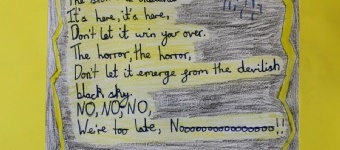 It's here, it's here,
Don't let it win you over.
The horror, the horror,
Don't let it emerge from the devilish
black sky.
NO, NO, NO,
We're too late, Nooooooooooooooo!!